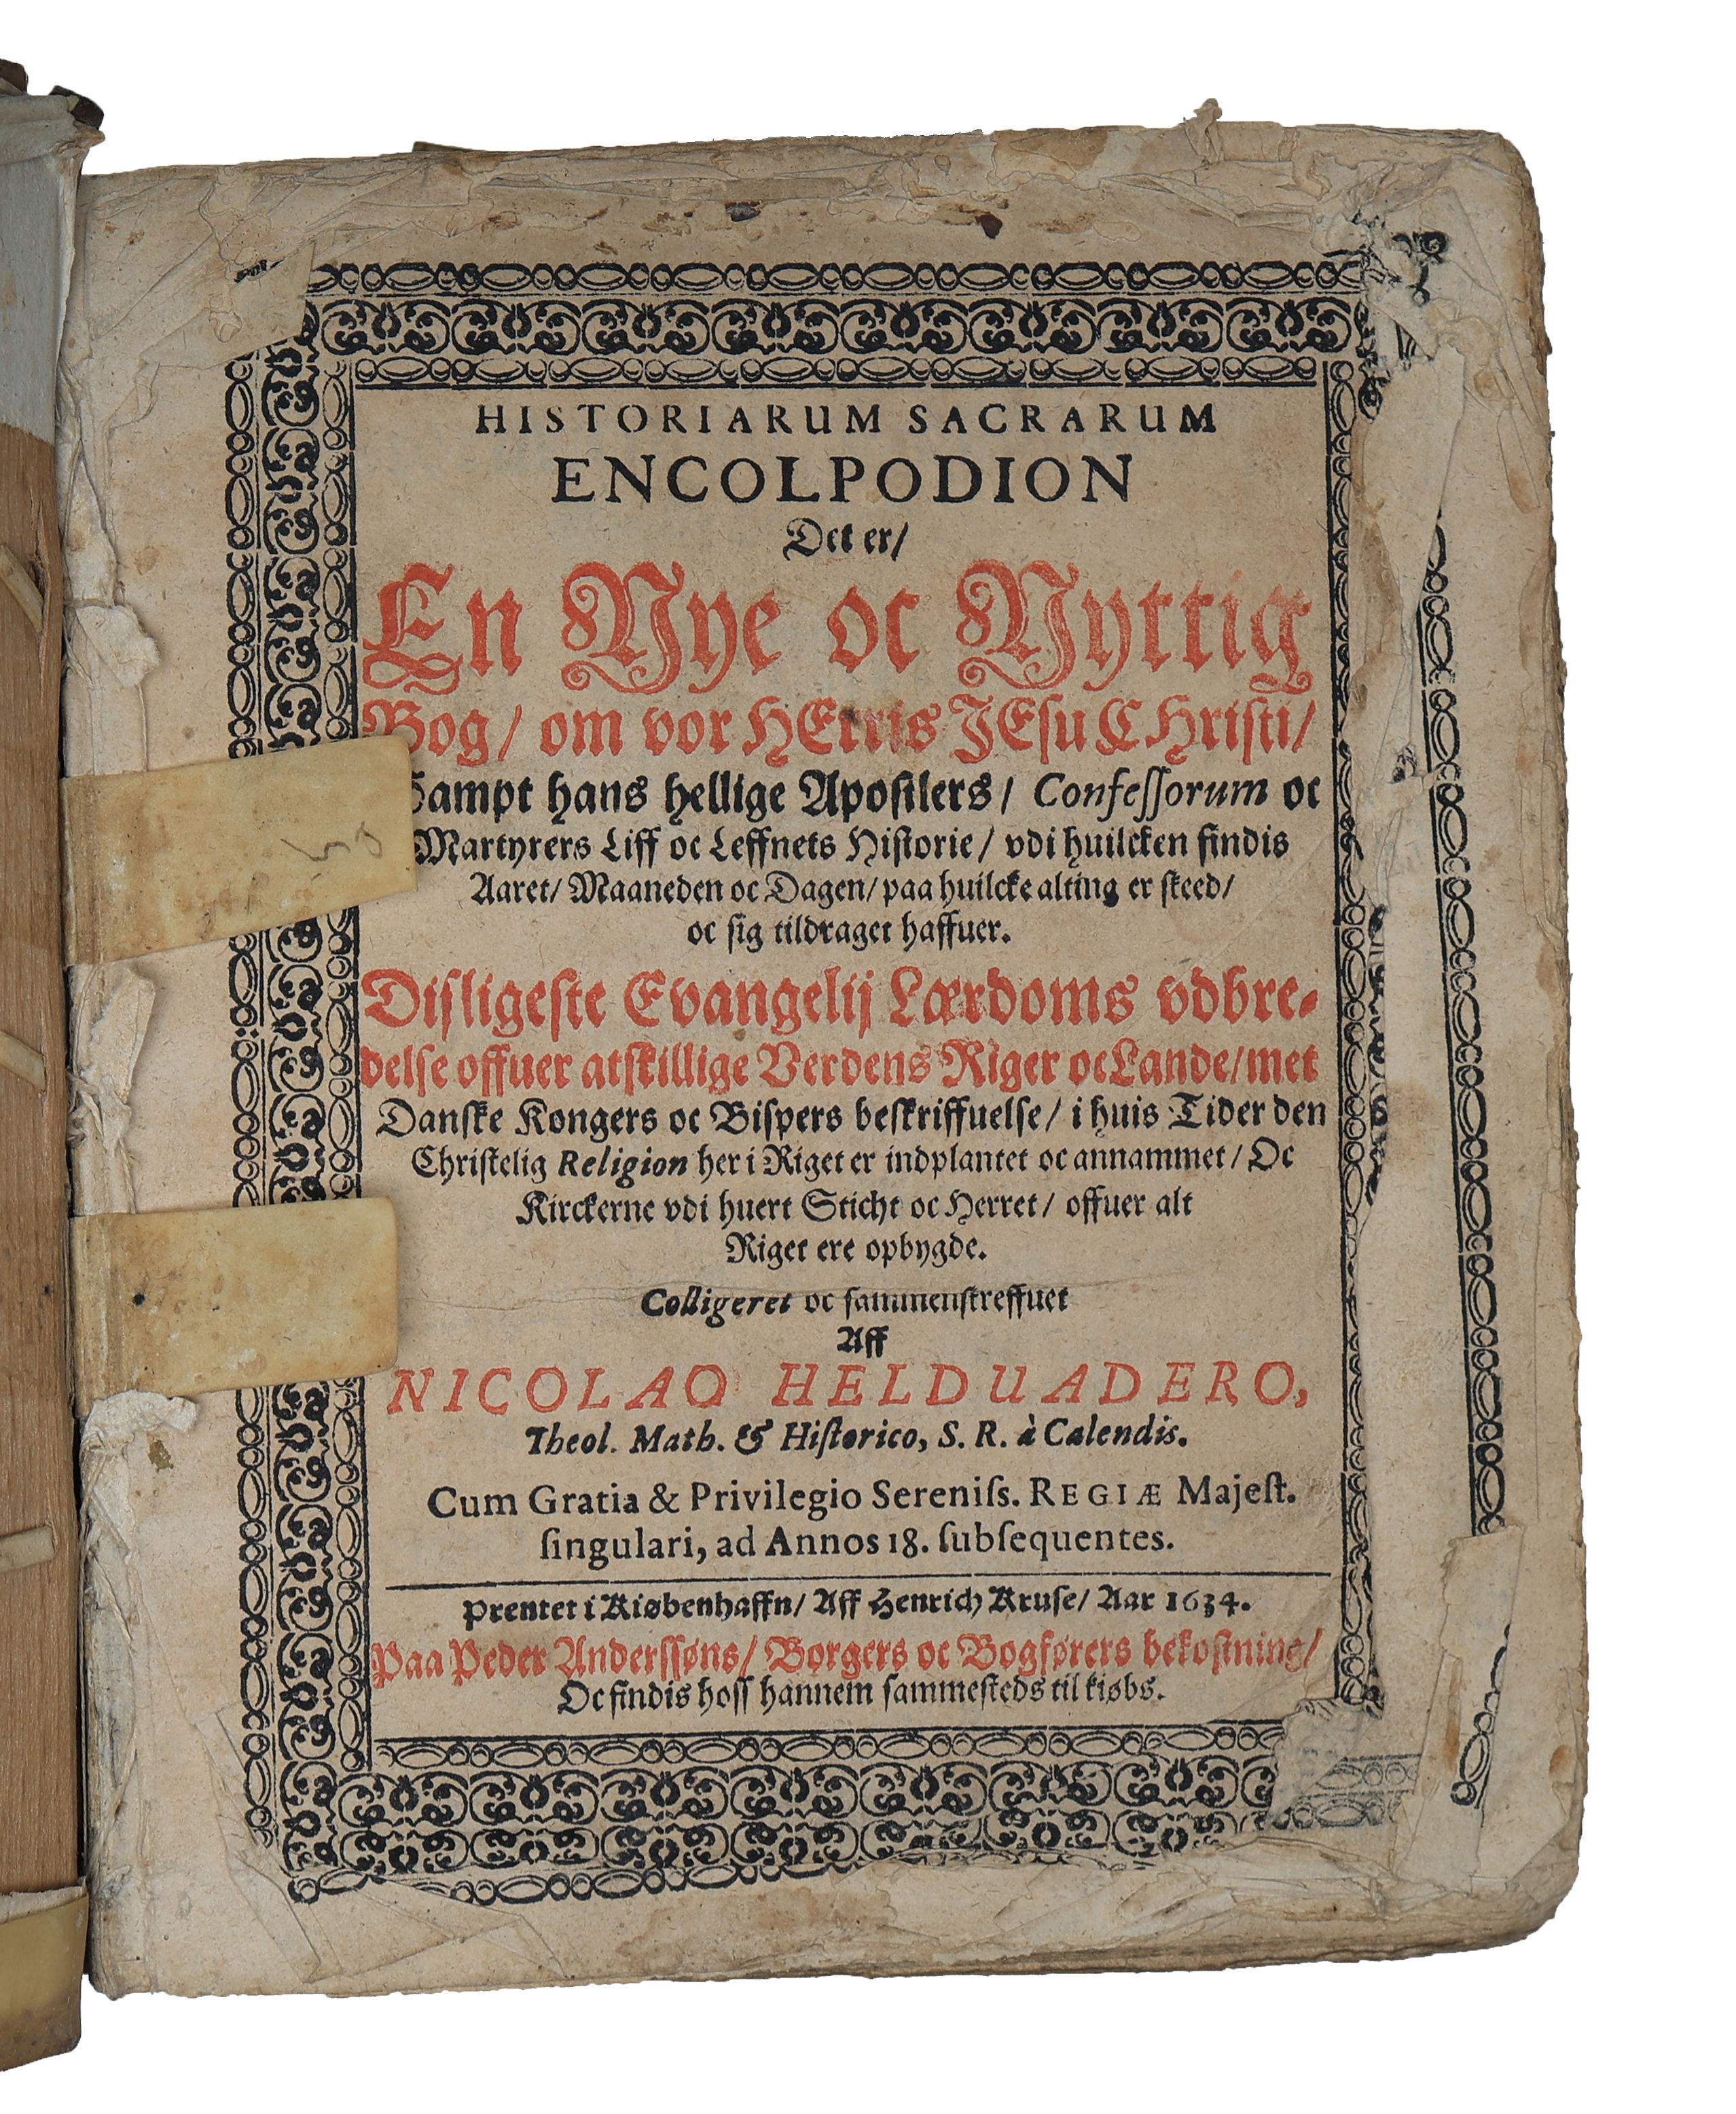 HISTORIARUM SACRARUM
ENCOLPODION
Det er/
En Nye oc Nyttig
Bog/ om vor HErris JEsu CHristi/
Sampt hans hellige Apostlers/ Confeſſorum oc
Martyrers Liff oc Leffnets Historie/ vdi huilcken findis
Aaret/ Maaneden oc Dagen/ paa huilcke alting er skeed/
oc sig tildraget haffuer.
Disligeste Evangelij Lærdoms vdbre-
delse offuer atskillige Verdens Riger oc Lande/ met
Danske Kongers oc Bispers beskriffuelse/ i huis Tider den
Christelig Religion her i Riget er indplantet oc annammet/ Oc
Kirckerne vdi huert Sticht oc Herret/ offuer alt
Riget ere opbygde.
Colligeret oc sammenskreffuet
Aff
NICOLAO HELDUADERO,
Theol. Math. & Hiſtorico, S. R. à Calendis.
Cum Gratia & Privilegio Sereniſs. REGIÆ Majeſt.
ſingulari, ad Annos 18. ſubſequentes.
Prentet i Kiøbenhaffn/ Aff Henrich Kruse/ Aar 1634.
Paa Peder Anderssøns/ Borgers oc Bogførers bekostning/
Oc findis hoss hannem sammesteds til kiøbs.